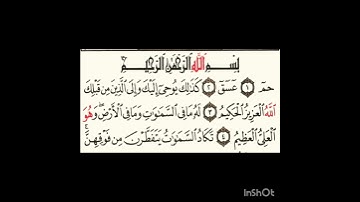 بِسْمِ اللَّهِ الرَّحْمَٰنِ الرَّحِيمِ
حمٓ ١ عٓسٓقٓ ٢ كَذَٰلِكَ يُوحِيٓ إِلَيْكَ وَإِلَى الَّذِينَ مِن قَبْلِكَ
اللَّهُ الْعَزِيزُ الْحَكِيمُ ٣ لَهُۥ مَا فِي السَّمَٰوَٰتِ وَمَا فِي الْأَرْضِ ۖ وَهُوَ
الْعَلِيُّ الْعَظِيمُ ٤ تَكَادُ السَّمَٰوَٰتُ يَتَفَطَّرْنَ مِن فَوْقِهِنَّ ۚ
InShOt